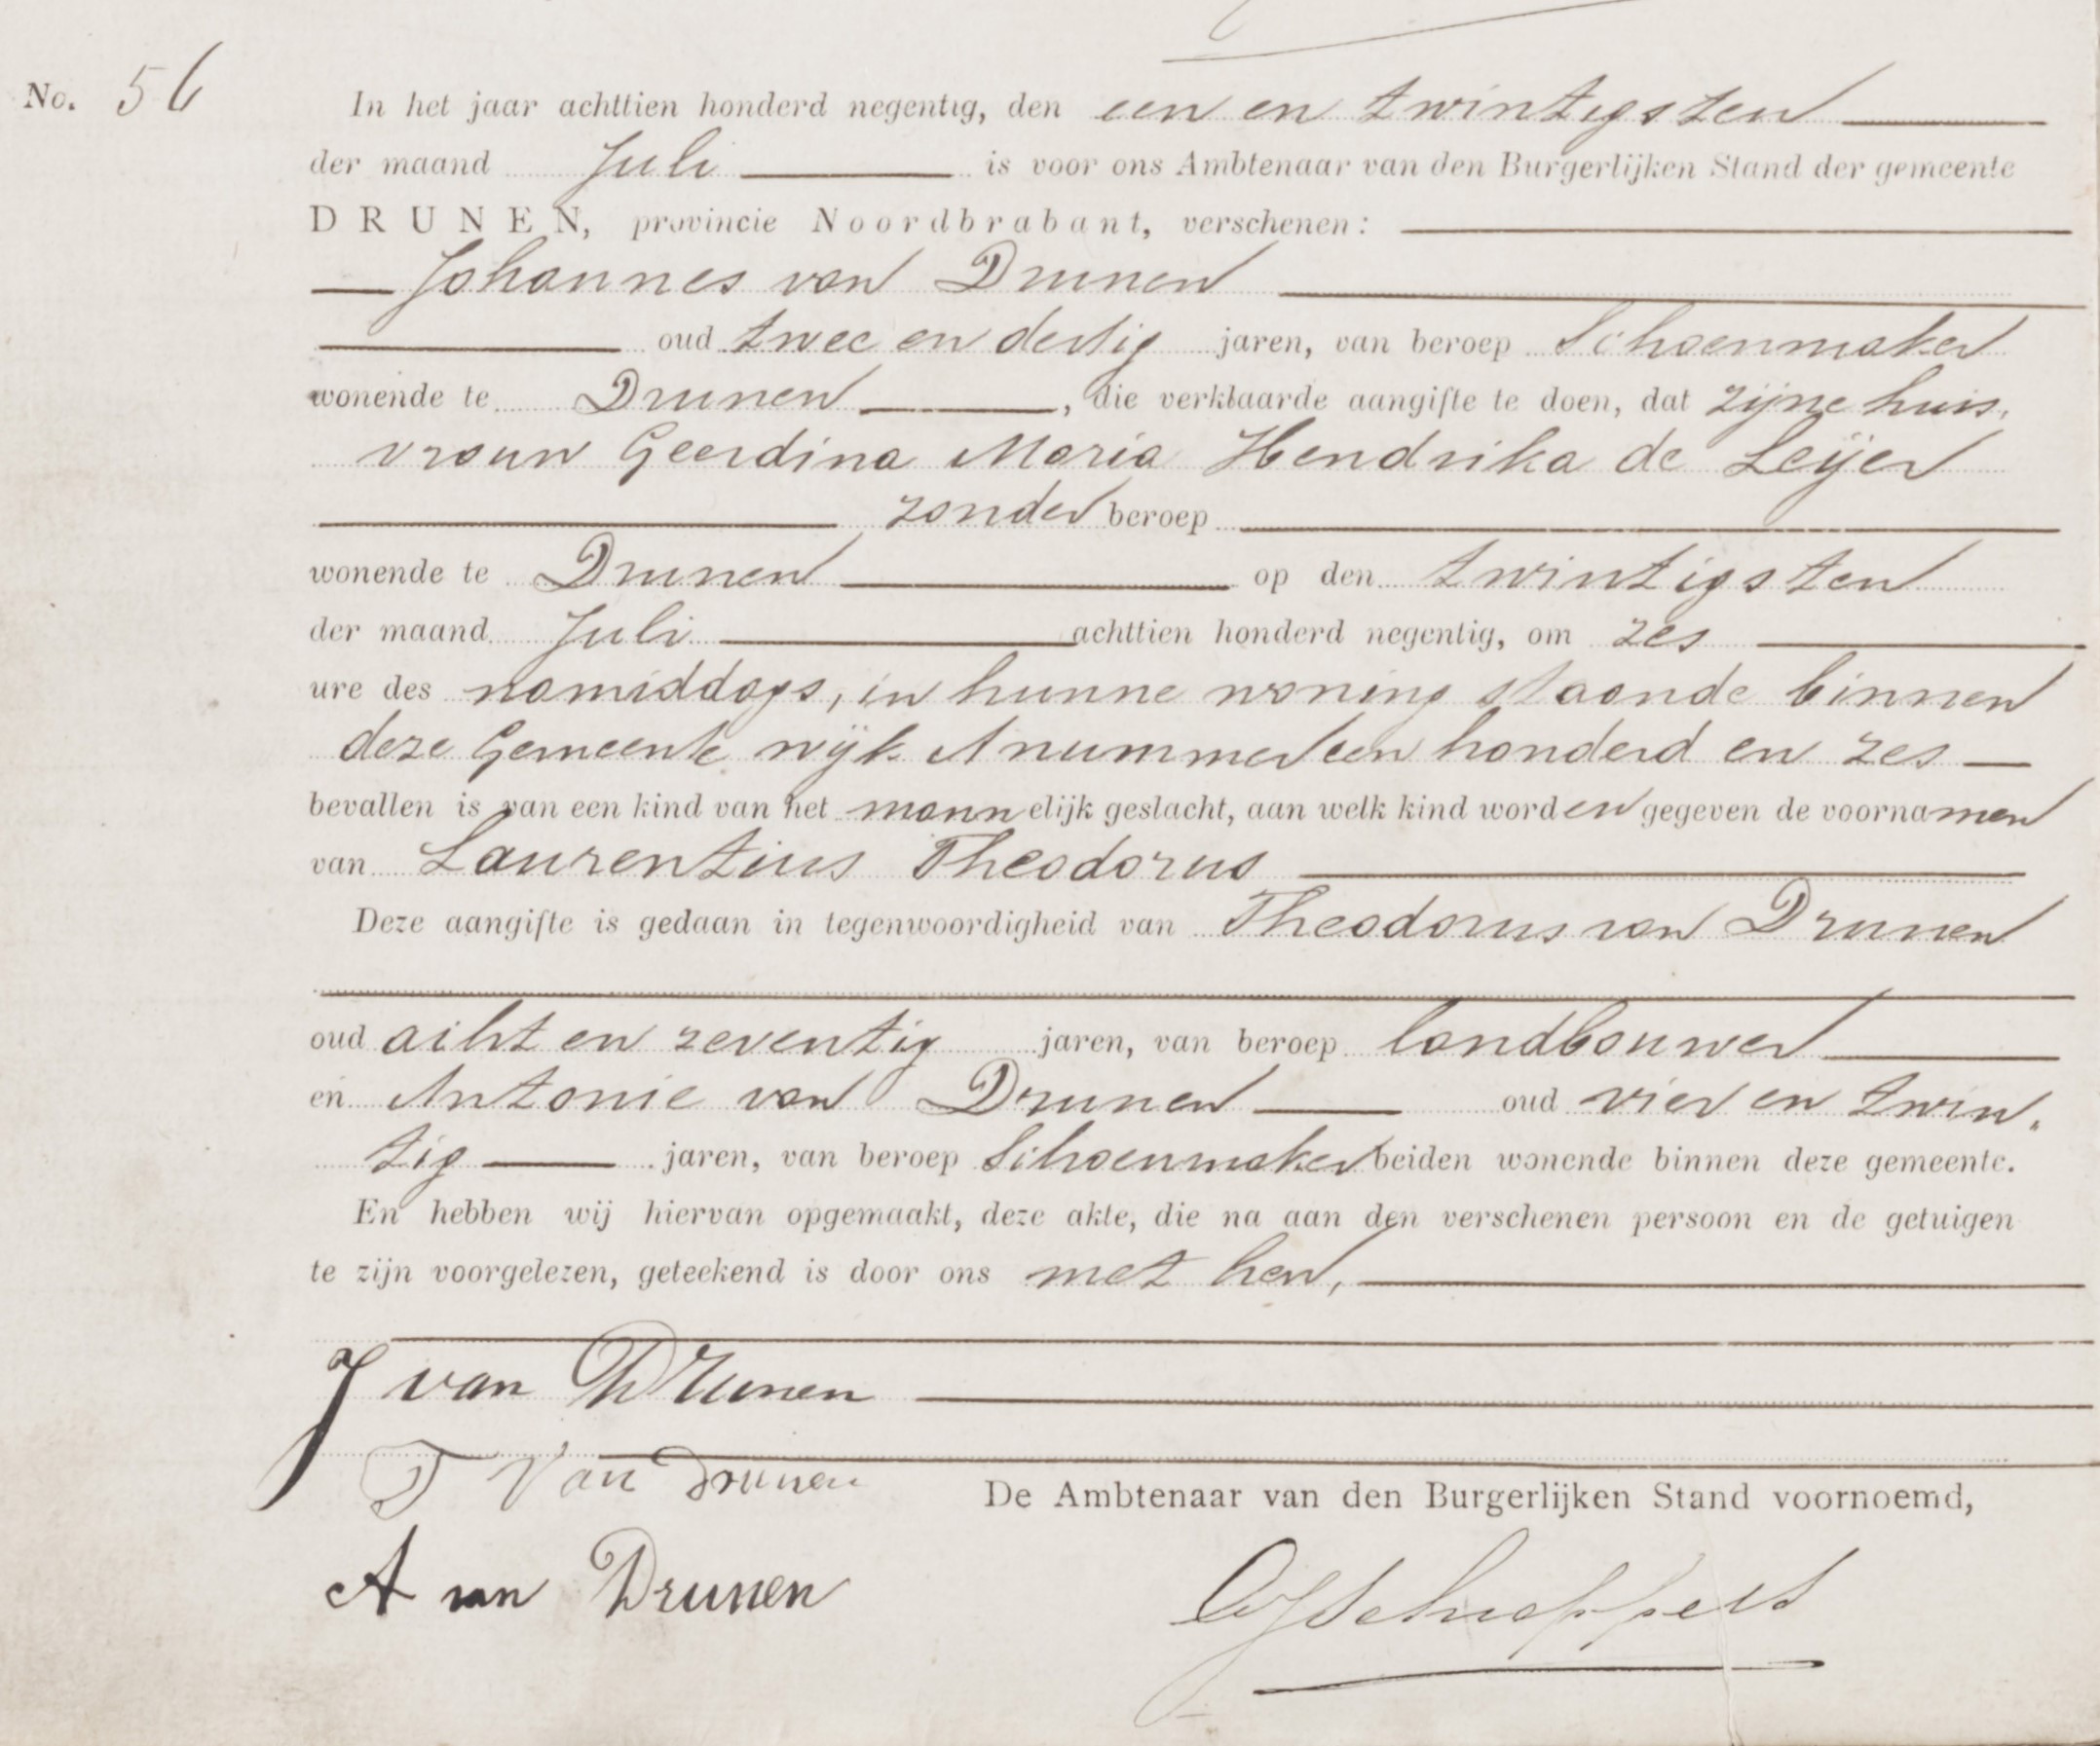 No. 56
In het jaar achttien honderd negentig, den een en twintigsten
der maand Juli is voor ons Ambtenaar van den Burgerlijken Stand der gemeente
DRUNEN, provincie Noordbrabant, verschenen:
Johannes van Drunen
oud twee en dertig jaren, van beroep Schoenmaker
wonende te Drunen, die verklaarde aangifte te doen, dat zijne huis,
vrouw Geerdina Maria Hendrika de Leijer
zonder beroep
wonende te Drunen op den twintigsten
der maand Juli achttien honderd negentig, om zes
ure des namiddags, in hunne woning staande binnen
deze Gemeente wijk A nummer een honderd en zes
bevallen is van een kind van het mannelijk geslacht, aan welk kind worden gegeven de voornamen
van Laurentius Theodorus
Deze aangifte is gedaan in tegenwoordigheid van Theodorus van Drunen
oud acht en zeventig jaren, van beroep landbouwer
en Antonie van Drunen oud vier en twin,
tig jaren, van beroep Schoenmaker beiden wonende binnen deze gemeente.
En hebben wij hiervan opgemaakt, deze akte, die na aan den verschenen persoon en de getuigen
te zijn voorgelezen, geteekend is door ons met hen,
J van Drunen
T Van Drunen
De Ambtenaar van den Burgerlijken Stand voornoemd,
A van Drunen